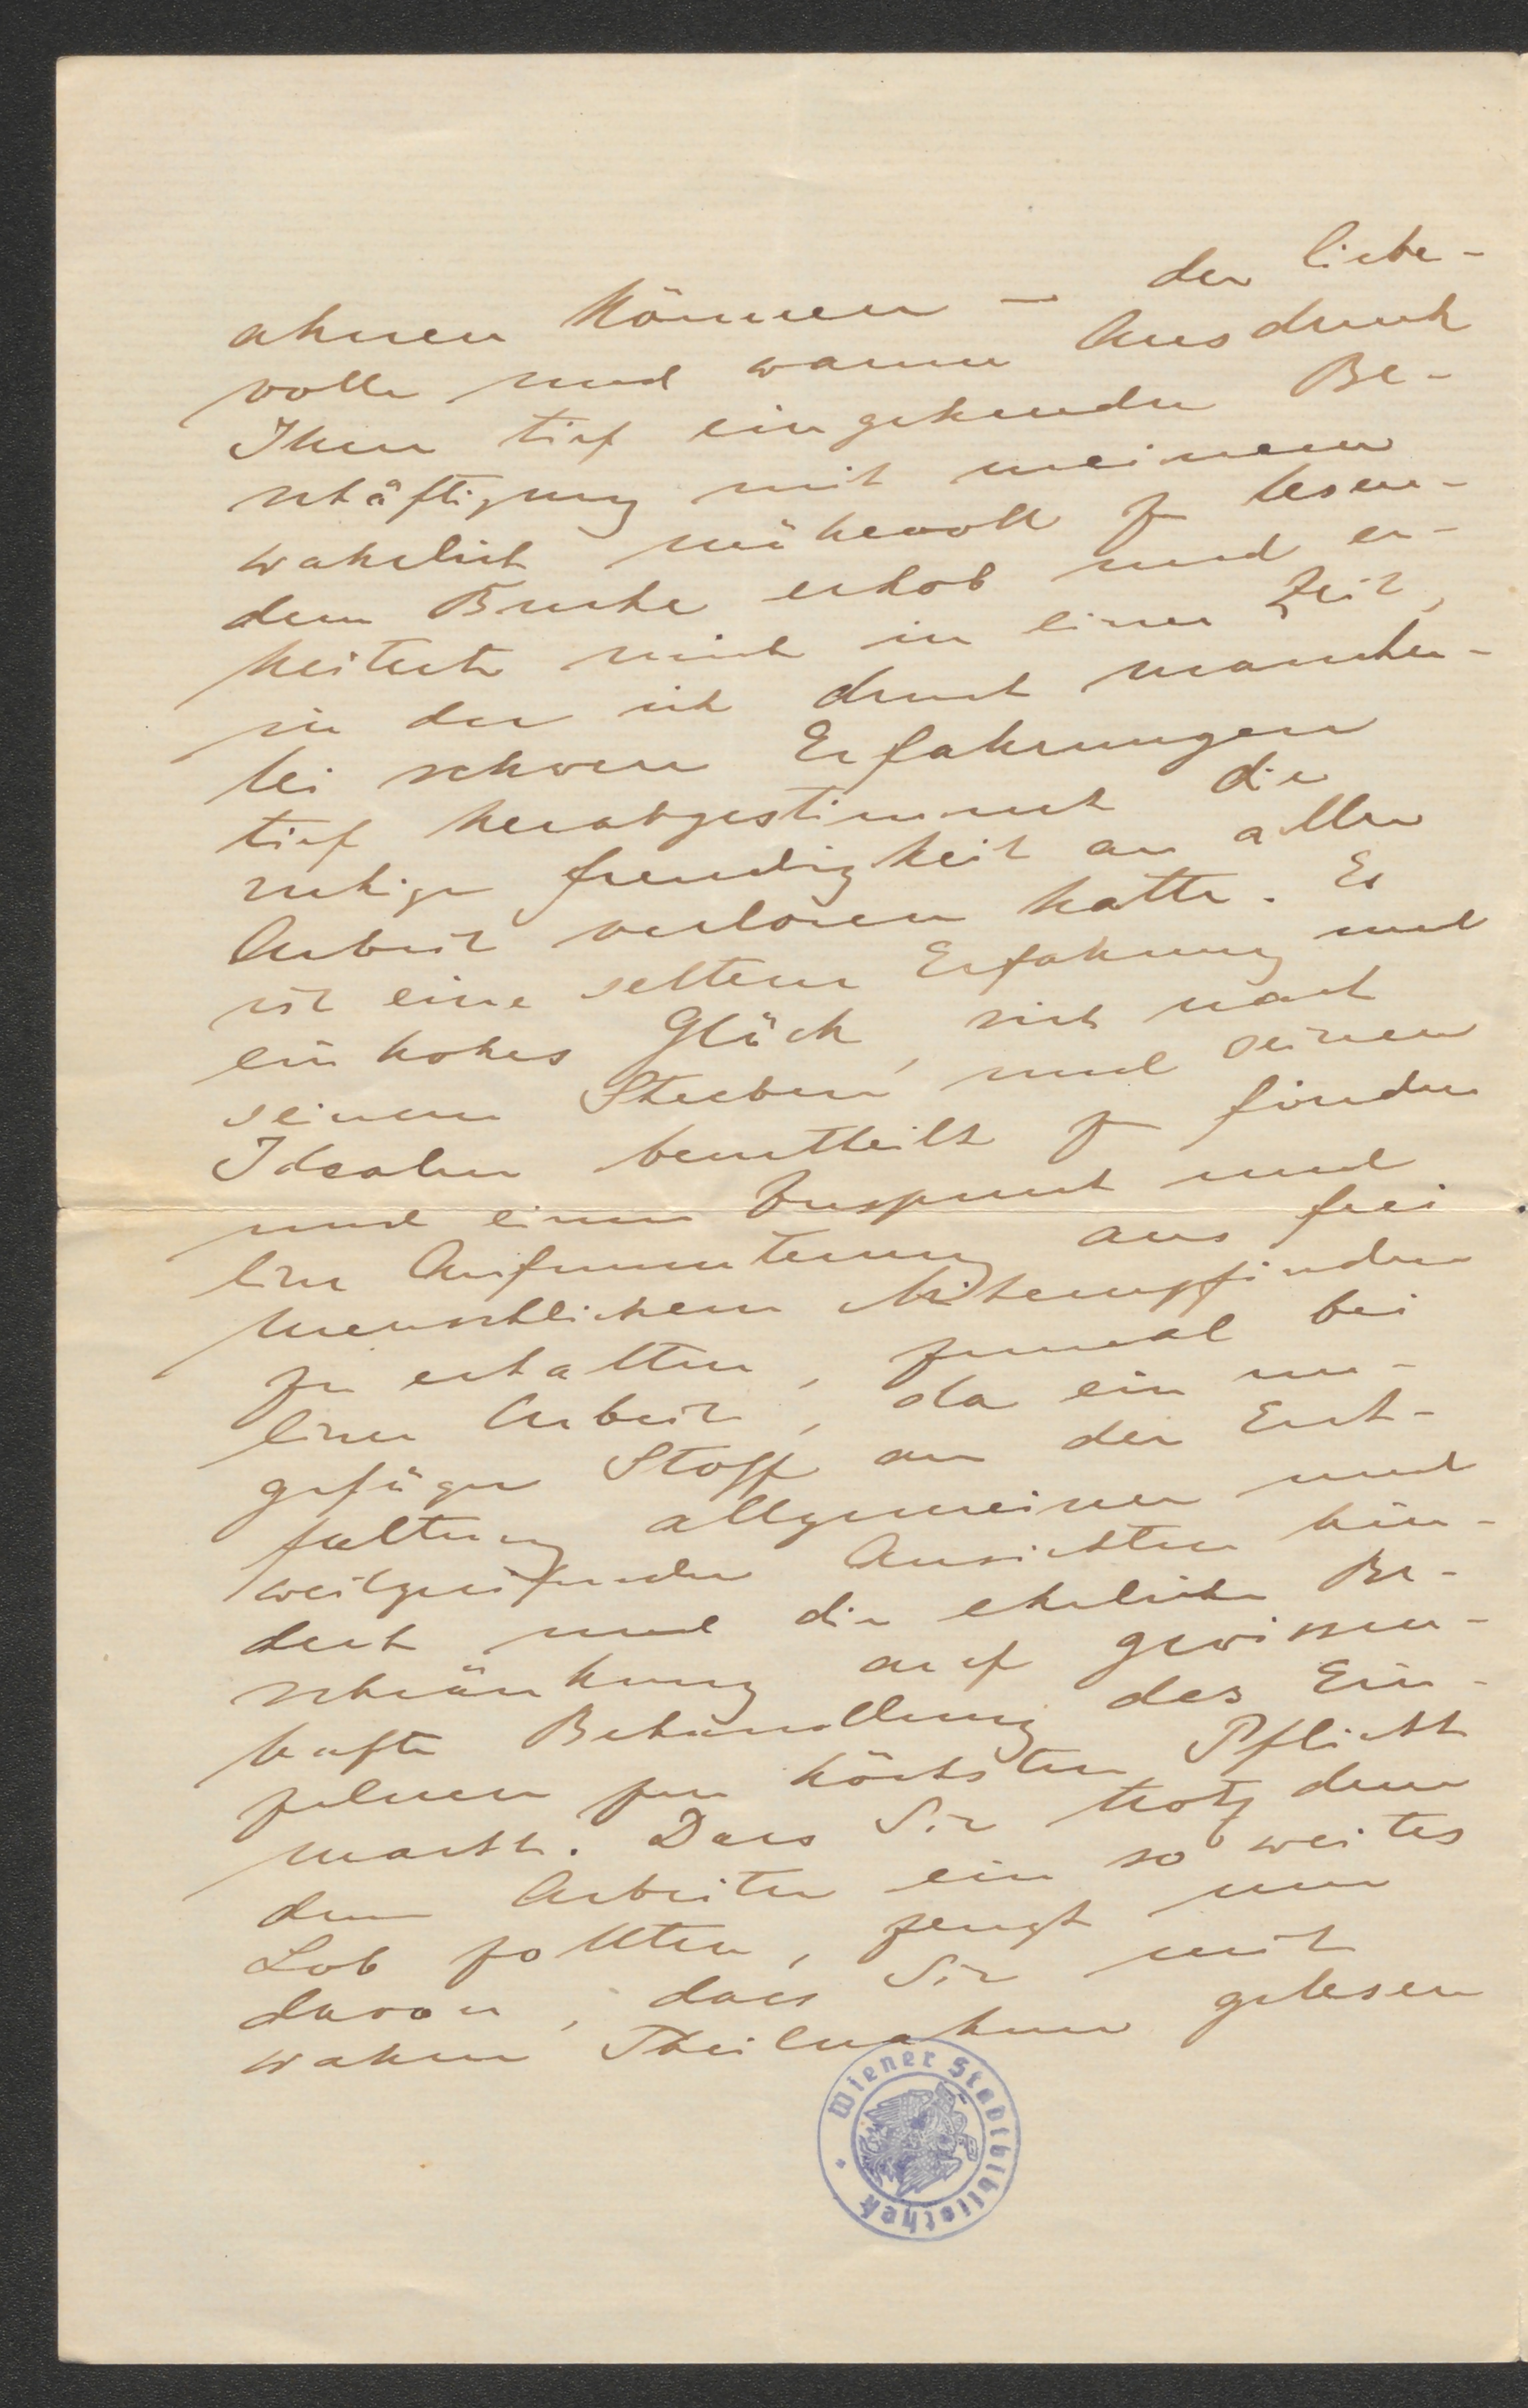 ahnen können – der liebe-
volle und warme Ausdruck
Ihrer tief eingehenden Be-
schäftigung mit meinem
wahrlich mühevoll zu lesen-
dem Buche erhob und er-
heiterte mich in einer Zeit,
in der ich durch mancher-
lei schwere Erfahrungen
tief herabgestimmt die
ruhige Freudigkeit an aller
Arbeit verloren hatte. Es
ist eine seltene Erfahrung und
ein hohes Glück, sich nach
seinem Streben und seinen
Idealen beurtheilt zu finden
und einen Zuspruch und
eine Aufmunterung aus frei
menschlichem Mitempfinden
zu erhalten, zumal bei
einer Arbeit, da ein un-
gefüger Stoff an der Ent-
faltung allgemeiner und
weitgreifender Ansichten hin-
dert und die ehrliche Be-
schränkung auf gewissen-
hafte Behandlung des Ein-
zelnen zur höchsten Pflicht
macht. Dass Sie trotz dem
dem Arbeiter ein so weites
Lob zollten, zeugt nur
davon, dass Sie mit
wahrer Theilnahme gelesen
Wiener Stadtbibliothek